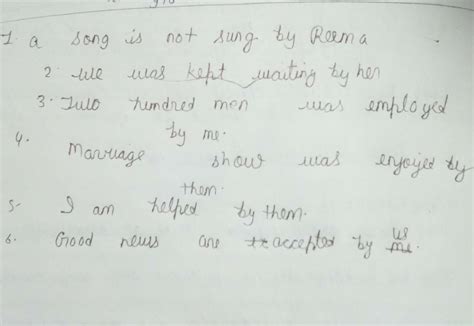 1. a song is not sung by Reema
2. we was kept waiting by her
3. Two hundred men was employed
by me.
4. Marriage show was enjoyed by
them.
5- I am helped by them.
6. Good news are accepted by us